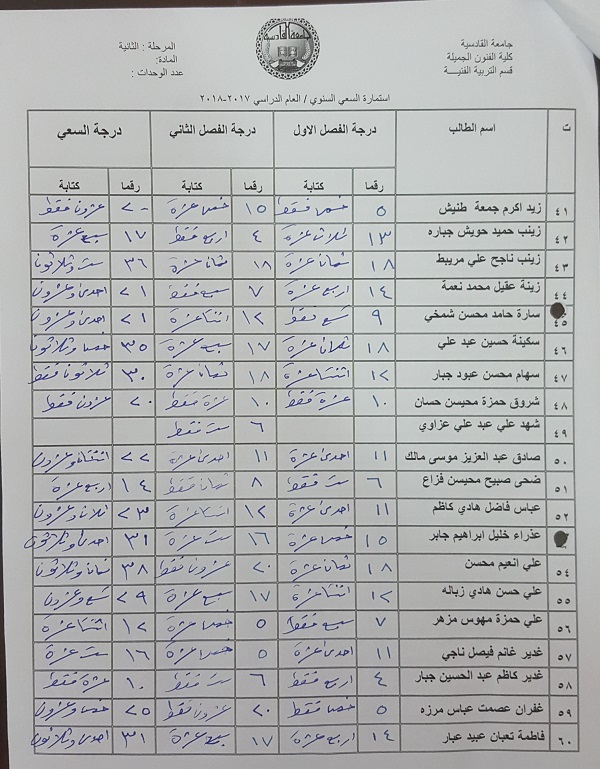 جامعة القادسية
كلية الفنون الجميلة
قسم التربية الفنيــة
جامعة القادسية
المرحلة : الثانية
المادة:
عدد الوحدات :
استمارة السعي السنوي / العام الدراسي ٢٠١٧-٢٠١٨
ت اسم الطالب درجة الفصل الاول درجة الفصل الثاني درجة السعي
رقما كتابة رقما كتابة رقما كتابة
٤١ زيد اكرم جمعة طنيش ٥ خمس فقط ١٥ خمسة عشرة ٢٠ عشرون فقط
٤٢ زينب حميد حويش جباره ١٣ ثلاث عشرة ٤ اربع فقط ١٧ سبع عشرة
٤٣ زينب ناجح علي مريبط ١٨ ثمان عشرة ١٨ ثمان عشرة ٣٦ ست وثلاثون
٤٤ زينة عقيل محمد نعمة ١٤ اربع عشرة ٧ سبع فقط ٢١ احدى وعشرون
٤٥ سارة حامد محسن شمخي ٩ تسع فقط ١٢ اثنتا عشرة ٢١ احدى وعشرون
٤٦ سكينة حسين عبد علي ١٨ ثمان عشرة ١٧ سبع عشرة ٣٥ خمس وثلاثون
٤٧ سهام محسن عبود جبار ١٢ اثنتا عشرة ١٨ ثمان عشرة ٣٠ ثلاثون فقط
٤٨ شروق حمزة محيسن حسان ١٠ عشرة فقط ١٠ عشرة فقط ٢٠ عشرون فقط
٤٩ شهد علي عبد علي عزاوي ٦ ست فقط
٥٠ صادق عبد العزيز موسى مالك ١١ احدى عشرة ١١ احدى عشرة ٢٢ اثنتان وعشرون
٥١ ضحى صبيح محيسن فزاع ٦ ست فقط ٨ ثمان فقط ١٤ اربع عشرة
٥٢ عباس فاضل هادي كاظم ١١ احدى عشرة ١٢ اثنتا عشرة ٢٣ ثلاث وعشرون
عذراء خليل ابراهيم جابر ١٥ خمس عشرة ١٦ ست عشرة ٣١ احدى وثلاثون
٥٤ علي انعيم محسن ١٨ ثمان عشرة ٢٠ عشرون فقط ٣٨ ثمان وثلاثون
٥٥ علي حسن هادي زباله ١٢ اثنتا عشرة ١٧ سبع عشرة ٢٩ تسع وعشرون
٥٦ علي حمزة مهوس مزهر ٧ سبع فقط ٥ خمس ١٢ اثنتا عشرة
٥٧ غدير غانم فيصل ناجي ١١ احدى عشرة ٥ ١٦ ست عشرة
٥٨ غدير كاظم عبد الحسين جبار ٤ اربع فقط ٦ ست فقط ١٠ عشرة فقط
٥٩ غفران عصمت عباس مرزه ٥ خمس فقط ٢٠ عشرون فقط ٢٥ خمس وعشرون
٦٠ فاطمة تعبان عبيد عبار ١٤ اربع عشرة ١٧ سبع عشرة ٣١ احدى وثلاثون